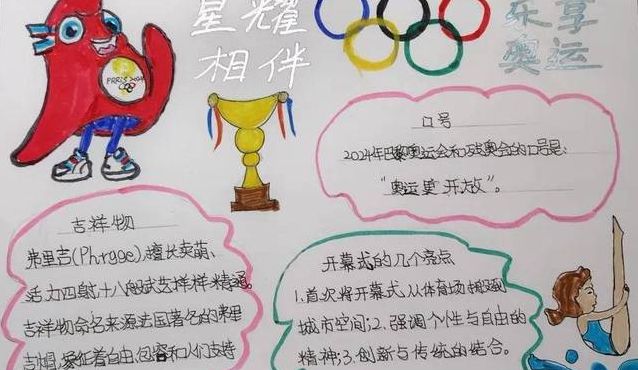 星耀
相伴
乐享
奥运
PARIS 2024
口号
2024年巴黎奥运会和残奥会的口号是:
“奥运更开放”。
吉祥物
弗里吉(Phryge),擅长卖萌、
活力四射,十八般武艺样样精通。
吉祥物命名来源法国著名的弗里
吉帽,象征着自由、包容和人们支持
开幕式的几个亮点
1.首次将开幕式从体育场搬到
城市空间;2.强调个性与自由的
精神;3.创新与传统的结合。